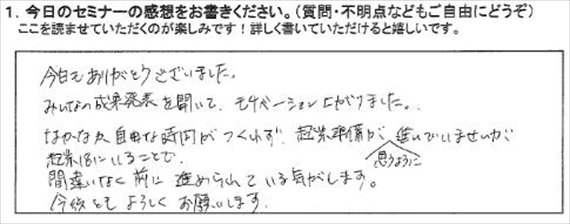 1. 今日のセミナーの感想をお書きください。(質問・不明点などもご自由にどうぞ)
ここを読ませていただくのが楽しみです!詳しく書いていただけると嬉しいです。
今日もありがとうございました。
みんなの成果発表を聞いて、モチベーション上がりました。
なかなか自由な時間がつくれず、起業準備が進んでいませんが
思うように
起業塾にいることで、
間違いなく前に進められている気がします。
今後ともよろしくお願いします。